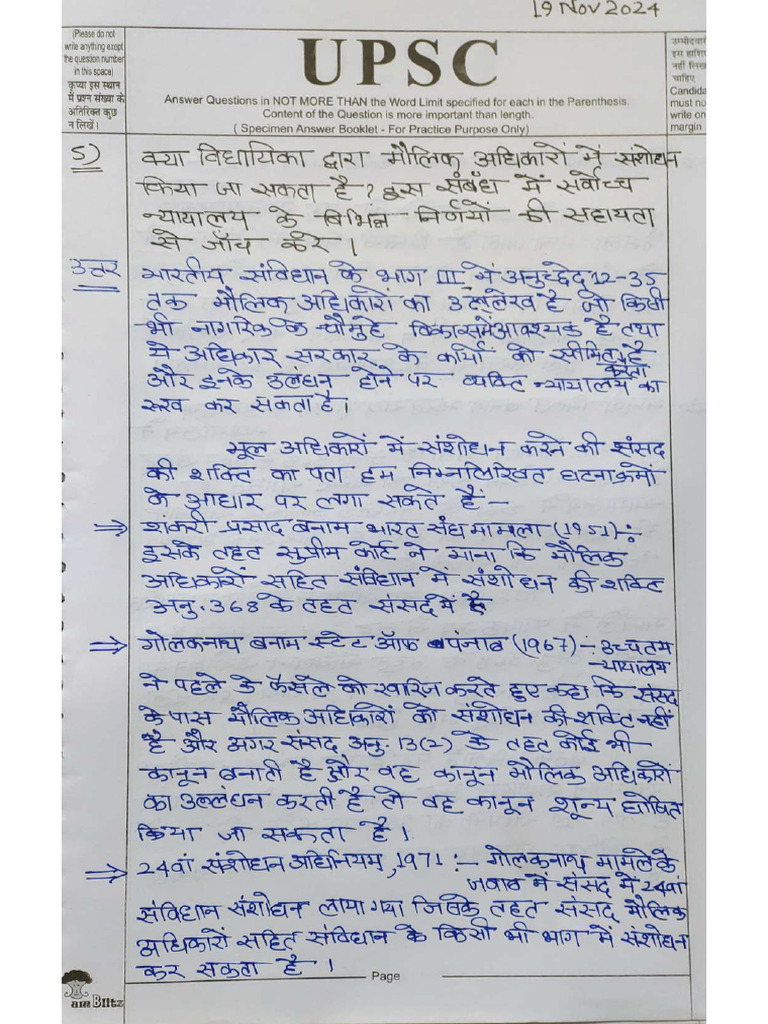 19 Nov 2024
(Please do not
write anything except
the question number
in this space)
कृप्या इस स्थान
में प्रश्न संख्या के
अतिरिक्त कुछ
न लिखें।
UPSC
Answer Questions in NOT MORE THAN the Word Limit specified for each in the Parenthesis.
Content of the Question is more important than length.
( Specimen Answer Booklet - For Practice Purpose Only)
उम्मीदवारों
इस हाशिए
नहीं लिख
चाहिए
Candida
must no
write on
margin
5) क्या विधायिका द्वारा मौलिक अधिकारों में संशोधन
किया जा सकता है? इस संबंध में सर्वोच्च
न्यायालय के विभिन्न निर्णयों की सहायता
से जाँच करे।
उत्तर भारतीय संविधान के भाग III में अनुच्छेद 12-35
तक मौलिक अधिकारों का उल्लेख है जो किसी
भी नागरिक के चौमुहे विकास में आवश्यक है तथा
ये अधिकार सरकार के कार्यो को सीमित करता है
और इनके उलंघन होने पर व्यक्ति न्यायालय का
रुख कर सकता है।
मूल अधिकारों में संशोधन करने की संसद
की शक्ति का पता हम निम्नलिखित घटनाक्रमों
के आधार पर लगा सकते हैं -
⇒ शंकरी प्रसाद बनाम भारत संघ मामला (1951) :-
इसके तहत सुप्रीम कोर्ट ने माना कि मौलिक
अधिकारों सहित संविधान में संशोधन की शक्ति
अनु. 368 के तहत संसद में है
⇒ गोलकनाथ बनाम स्टेट ऑफ पंजाब (1967) :- उच्चतम
न्यायालय
ने पहले के फैसले को खारिज करते हुए कहा कि संसद
के पास मौलिक अधिकारों को संशोधन की शक्ति नहीं
है और अगर संसद अनु. 13(2) के तहत कोई भी
कानून बनाती है और वह कानून मौलिक अधिकारों
का उल्लंघन करती है तो वह कानून शून्य घोषित
किया जा सकता है।
⇒ 24वां संशोधन अधिनियम, 1971 :- गोलकनाथ मामले के
जवाब में संसद में 24वां
संविधान संशोधन लाया गया जिसके तहत संसद मौलिक
अधिकारों सहित संविधान के किसी भी भाग में संशोधन
कर सकता है।
Page
am Blitz